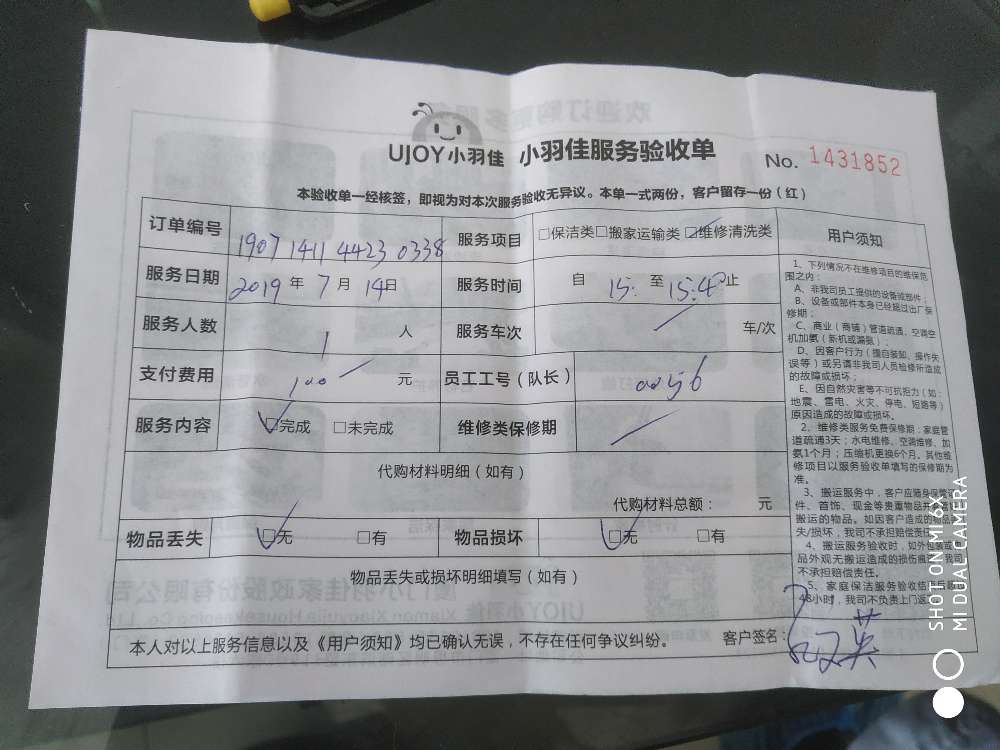 UJOY小羽佳 小羽佳服务验收单 No. 1431852
本验收单一经核签，即视为对本次服务验收无异议。本单一式两份，客户留存一份（红）
订单编号 1907 1411 4423 0338 服务项目 □保洁类□搬家运输类☑维修清洗类
服务日期 2019 年 7 月 14日 服务时间 自 15: 至 15:40止
服务人数 1 人 服务车次 / 车/次
支付费用 100 元 员工工号（队长） 0056
服务内容 ☑完成 □未完成 维修类保修期 /
代购材料明细（如有）
代购材料总额： 元
物品丢失 ☑无 □有 物品损坏 ☑无 □有
物品丢失或损坏明细填写（如有）
本人对以上服务信息以及《用户须知》均已确认无误，不存在任何争议纠纷。 客户签名： 英
用户须知
1、下列情况不在维修项目的维保范
围之内：
A、非我司员工提供的设备或部件；
B、设备或部件本身已经超过出厂保
修期；
C、商业（商铺）管道疏通、空调空
机加氨（新机或漏氨）；
D、因客户行为（擅自装卸、操作失
误等）或另请非我司人员检修所造成
的故障或损坏；
E、因自然灾害等不可抗拒力（如：
地震、雷电、火灾、停电、短路等）
原因造成的故障或损坏。
2、维修类服务免费保修期：家庭管
道疏通3天；水电维修、空调维修、加
氨1个月；压缩机更换6个月。其他维
修项目以服务验收单填写的保修期为
准。
3、搬运服务中，客户应随身保管证
件、首饰、现金等贵重物品并
搬运的物品。如因客户造成的物品
失/损坏，我司不承担赔偿责任
4、搬运服务验收时，如外包装或
品外观无搬运造成的损伤痕迹，我司
不承担赔偿责任。
5、家庭保洁服务验收结束后超
48小时，我司不负责上门返
SHOT ON MI 6X
MI DUAL CAMERA